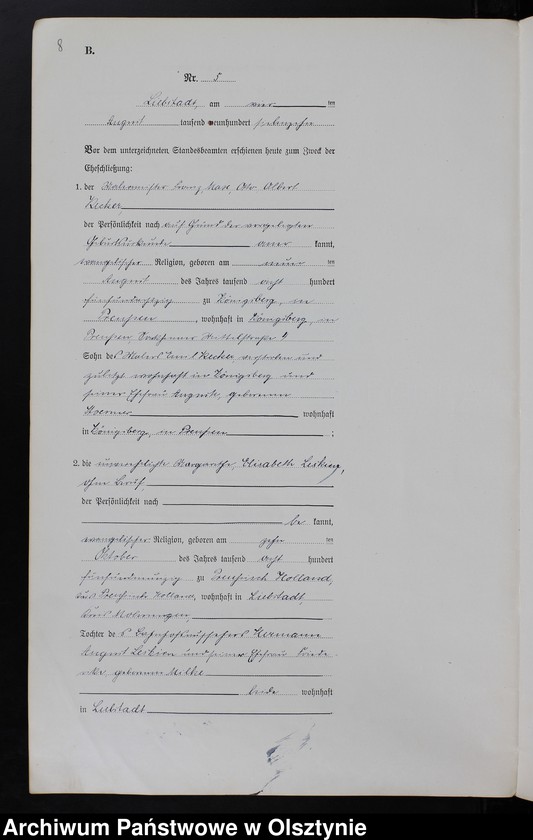 8
B.
Nr. 5
Liebstadt, am vier ten
August tausend neunhundert siebenzehn
Vor dem unterzeichneten Standesbeamten erschienen heute zum Zweck der
Eheschließung:
1. der Franz, Max, Otto Albert
der Persönlichkeit nach auf Grund der vorgelegten
Geburtsurkunde aner kannt,
evangelischer Religion, geboren am neun ten
August des Jahres tausend acht hundert
fünfundachtzig zu Königsberg, in
Preußen, wohnhaft in Königsberg, in
Preußen
Sohn des verstorben und
zuletzt wohnhaft in Königsberg und
seiner Ehefrau Auguste, geborenen
wohnhaft
in Königsberg, in Preußen ;
2. die Margarethe, Elisabeth
ohne Beruf,
der Persönlichkeit nach
be kannt,
evangelischer Religion, geboren am zehn ten
Oktober des Jahres tausend acht hundert
fünfundneunzig zu Preußisch Holland,
Kreis Preußisch Holland, wohnhaft in Liebstadt,
Kreis Mohrungen
Tochter des Hermann
August und seiner Ehefrau Friede-
rike, geborenen
beide wohnhaft
in Liebstadt
Archiwum Państwowe w Olsztynie